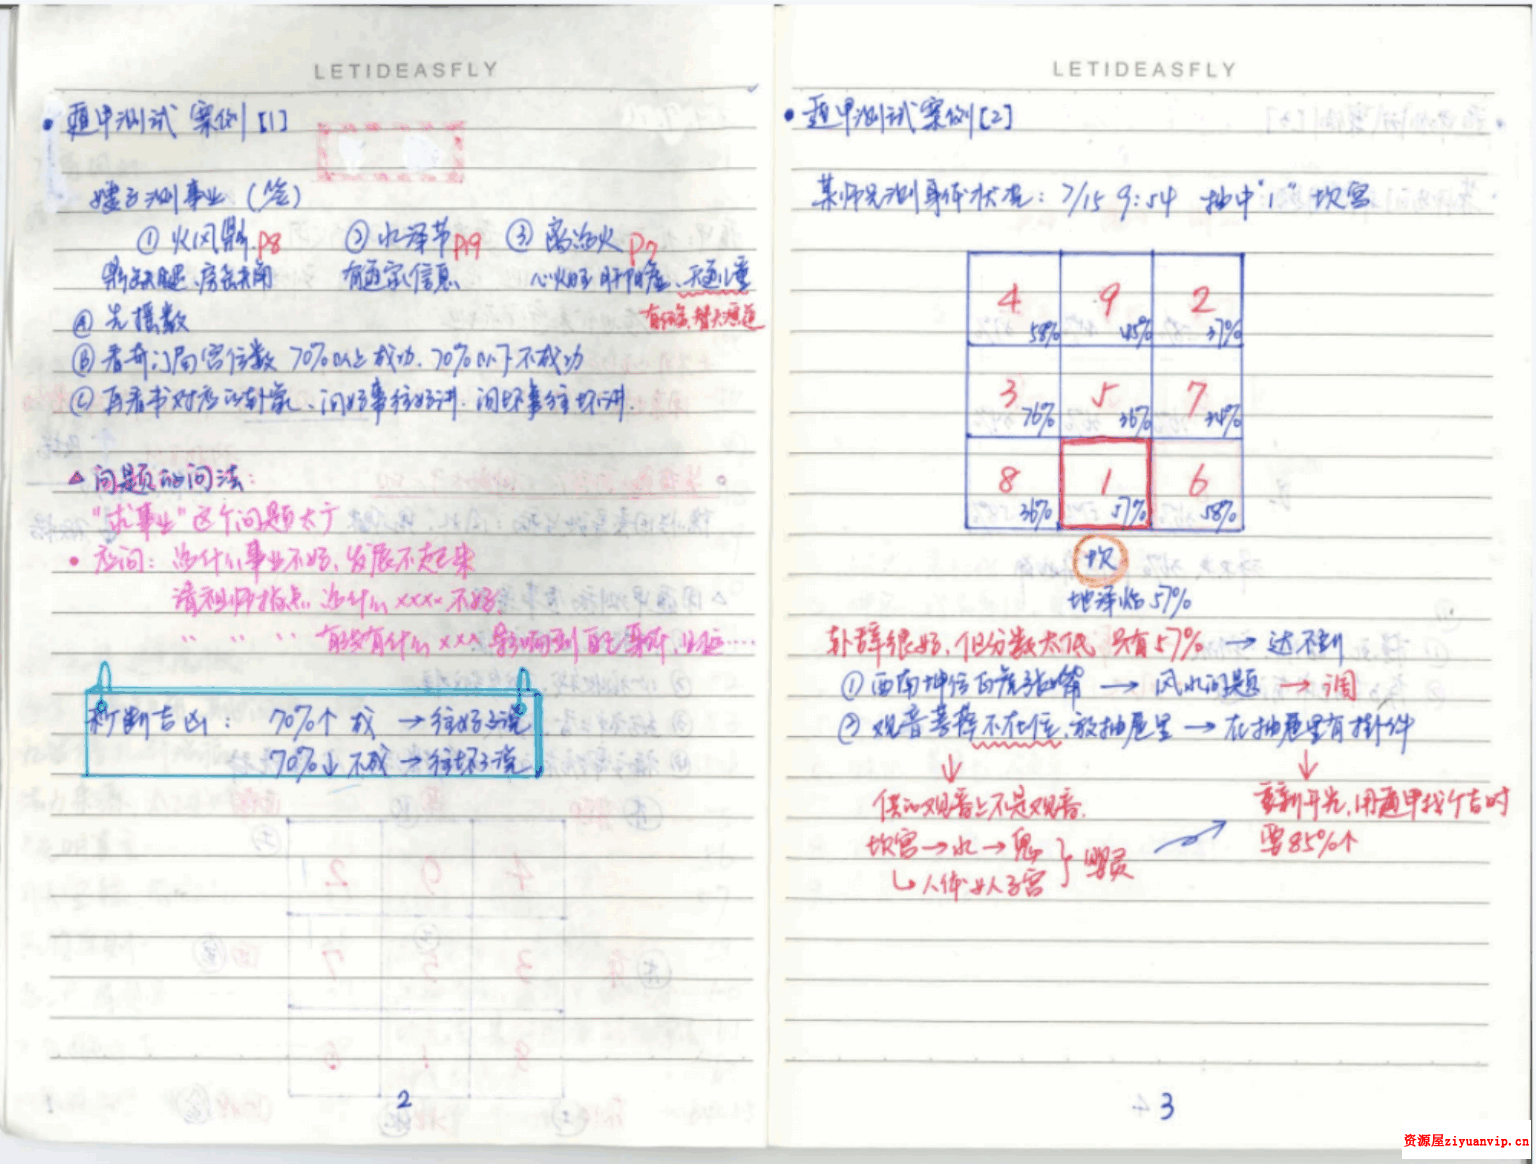 LETIDEASFLY
• 遁甲测试案例[1]
测事业（签）
① 火风鼎 P8 ② 水泽节 P19 ③ 离为火 P7
有道家信息 心火旺 肝阳虚、天通儿童
Ⓐ 先摇数
Ⓑ 看奇门局宫位数 70%以上成功、70%以下不成功
Ⓒ 再看书对应的卦象、问好事往好讲、问坏事往坏讲.
△ 问题的问法:
"求事业"这个问题太广
• 应问: 为什么事业不好, 发展不起来
请祖师指点 为什么xxxx不好
" " " 有没有什么xxx影响到自己身体,
断吉凶: 70%个 成 → 往好了说
70%↓ 不成 → 往坏了说
2
LETIDEASFLY
• 遁甲测试案例[2]
某师兄测身体状况: 7/15 9:54 抽中"1"坎宫
4 58% 9 45% 2 37%
3 76% 5 36% 7 34%
8 36% 1 57% 6 58%
坎
地泽临 57%
卦辞很好, 但分数太低 只有57% → 达不到
① 西南坤位白虎张嘴 → 风水问题 → 调
② 观音菩萨不在位, 放抽屉里 → 在抽屉里有挂件
供的观音上不是观音.
坎宫 → 水 → 鬼 婴灵
↳ 人体女人子宫
重新开光, 用遁甲找个吉时
要85%个
3
资源屋ziyuanvip.cn